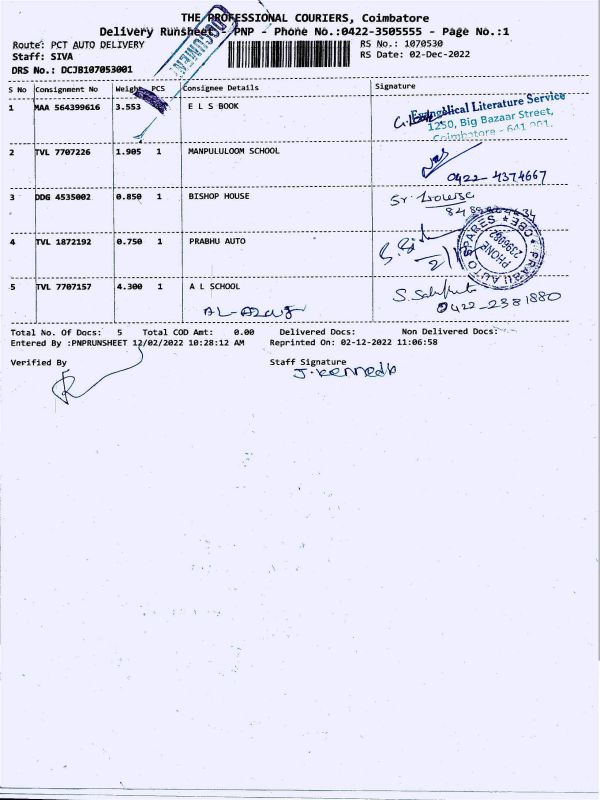 THE PROFESSIONAL COURIERS, Coimbatore
Delivery Runsheet - PNP - Phone No.:0422-3505555 - Page No.:1
Route: PCT AUTO DELIVERY
RS No.: 1070530
Staff: SIVA
RS Date: 02-Dec-2022
DRS No.: DCJB107053001
S No Consignment No Weight PCS Consignee Details Signature
1 MAA 564399616 3.553 E L S BOOK
Evangelical Literature Service
1250, Big Bazaar Street,
Coimbatore - 641 001.
2 TVL 7707226 1.905 1 MANPULULOOM SCHOOL
0422-4374667
3 DDG 4535002 0.850 1 BISHOP HOUSE
Sr Louise
4 TVL 1872192 0.750 1 PRABHU AUTO
PRABHU AUTO SPARES * CBE *
PHONE
5 TVL 7707157 4.300 1 A L SCHOOL
0422-2381880
Total No. Of Docs: 5 Total COD Amt: 0.00 Delivered Docs: Non Delivered Docs:
Entered By :PNPRUNSHEET 12/02/2022 10:28:12 AM Reprinted On: 02-12-2022 11:06:58
Verified By Staff Signature